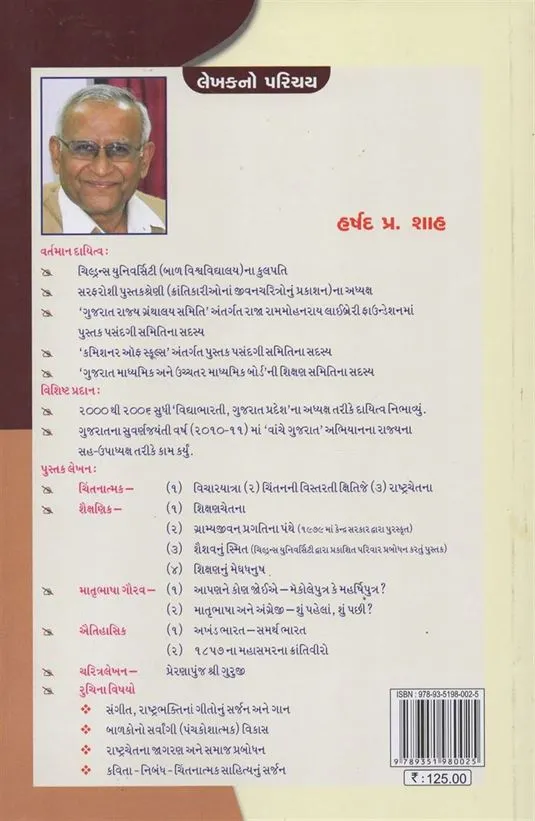 લેખકનો પરિચય
હર્ષદ પ્ર. શાહ
વર્તમાન દાયિત્વ :
ચિલ્ડ્રન્સ યુનિવર્સિટી (બાળ વિશ્વવિદ્યાલય)ના કુલપતિ
સરફરોશી પુસ્તકશ્રેણી (ક્રાંતિકારીઓનાં જીવનચરિત્રોનું પ્રકાશન)ના અધ્યક્ષ
'ગુજરાત રાજ્ય ગ્રંથાલય સમિતિ' અંતર્ગત રાજા રામમોહનરાય લાઈબ્રેરી ફાઉન્ડેશનમાં
પુસ્તક પસંદગી સમિતિના સદસ્ય
'કમિશનર ઓફ સ્કૂલ્સ' અંતર્ગત પુસ્તક પસંદગી સમિતિના સદસ્ય
'ગુજરાત માધ્યમિક અને ઉચ્ચતર માધ્યમિક બોર્ડ'ની શિક્ષણ સમિતિના સદસ્ય
વિશિષ્ટ પ્રદાન :
૨૦૦૦ થી ૨૦૦૬ સુધી 'વિદ્યાભારતી, ગુજરાત પ્રદેશ'ના અધ્યક્ષ તરીકે દાયિત્વ નિભાવ્યું.
ગુજરાતના સુવર્ણજયંતી વર્ષ (૨૦૧૦-૧૧) માં 'વાંચે ગુજરાત' અભિયાનના રાજ્યના
સહ-ઉપાધ્યક્ષ તરીકે કામ કર્યું.
પુસ્તક લેખન :
ચિંતનાત્મક – (૧) વિચારયાત્રા (૨) ચિંતનની વિસ્તરતી ક્ષિતિજે (૩) રાષ્ટ્રચેતના
શૈક્ષણિક – (૧) શિક્ષણચેતના
(૨) ગ્રામ્યજીવન પ્રગતિના પંથે (૧૯૭૯ માં કેન્દ્ર સરકાર દ્વારા પુરસ્કૃત)
(૩) શૈશવનું સ્મિત (ચિલ્ડ્રન્સ યુનિવર્સિટી દ્વારા પ્રકાશિત પરિવાર પ્રબોધન કરતું પુસ્તક)
(૪) શિક્ષણનું મેઘધનુષ
માતૃભાષા ગૌરવ – (૧) આપણને કોણ જોઈએ – મેકોલેપુત્ર કે મહર્ષિપુત્ર?
(૨) માતૃભાષા અને અંગ્રેજી – શું પહેલાં, શું પછી?
ઐતિહાસિક (૧) અખંડ ભારત – સમર્થ ભારત
(૨) ૧૮૫૭ ના મહાસમરના ક્રાંતિવીરો
ચરિત્રલેખન – પ્રેરણાપુંજ શ્રી ગુરુજી
રુચિના વિષયો
સંગીત, રાષ્ટ્રભક્તિનાં ગીતોનું સર્જન અને ગાન
બાળકોનો સર્વાંગી (પંચકોશાત્મક) વિકાસ
રાષ્ટ્રચેતના જાગરણ અને સમાજ પ્રબોધન
કવિતા - નિબંધ - ચિંતનાત્મક સાહિત્યનું સર્જન
ISBN : 978-93-5198-002-5
9 789351 980025
₹ : 125.00